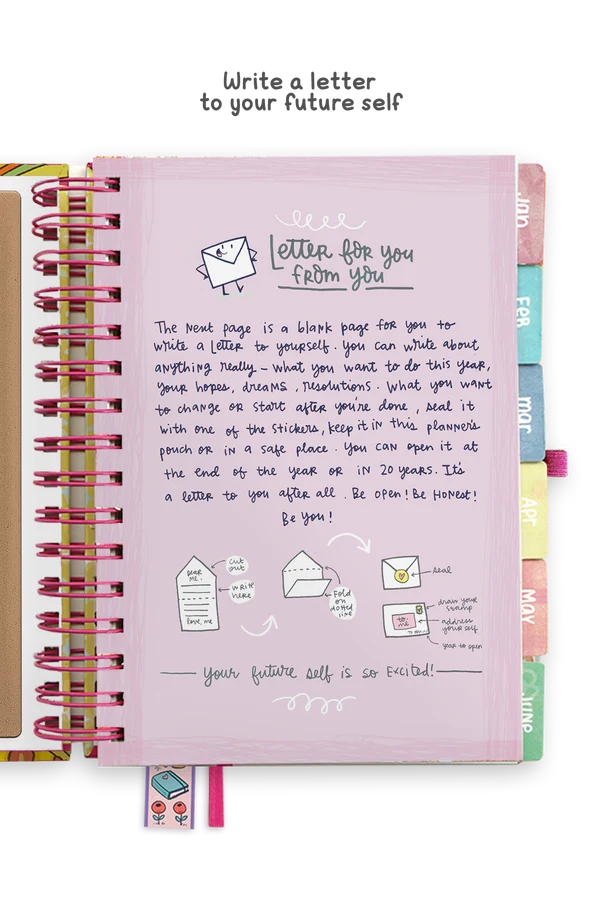 Write a letter
to your future self
Letter for you
from you
The next page is a blank page for you to
write a letter to yourself. You can write about
anything really - what you want to do this year,
your hopes, dreams, resolutions. What you want
to change or start after you're done, seal it
with one of the stickers, keep it in this planner's
pouch or in a safe place. You can open it at
the end of the year or in 20 years. It's
a letter to you after all. Be open! Be Honest!
Be You!
Dear
me,
love, me
Cut
out
Write
here
Fold
on
dotted
line
seal
to:
me
draw your
stamp
address
your self
year to open
Your future self is so excited!
Jan
Feb
Mar
Apr
May
June